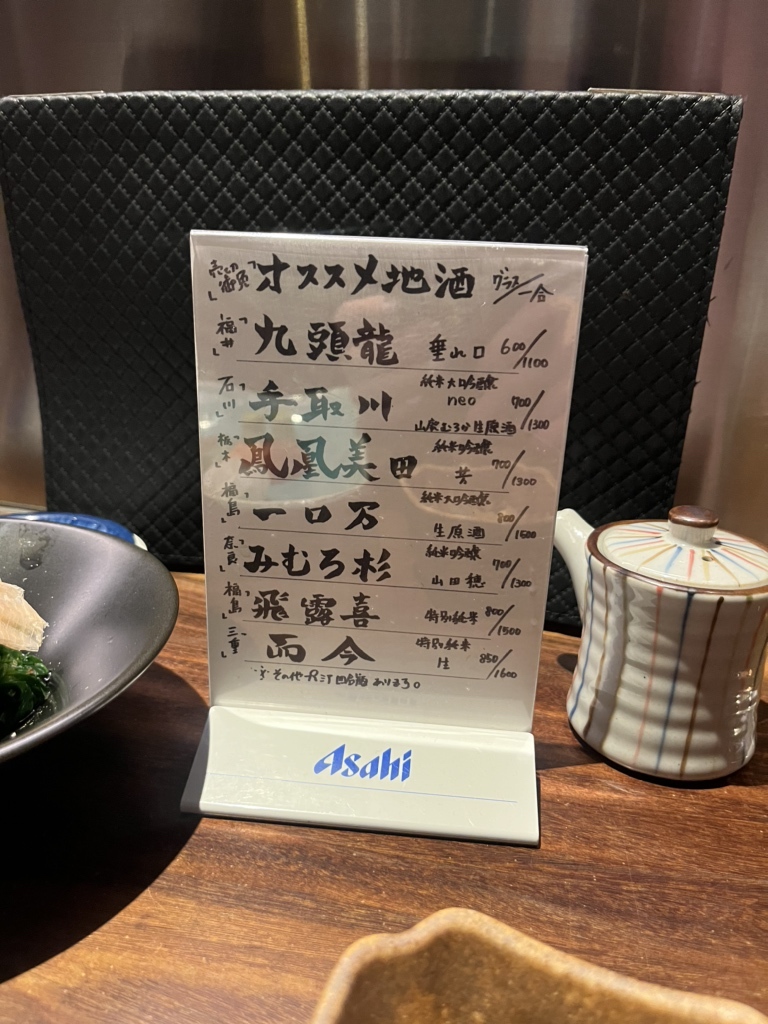 売切御免 オススメ地酒 グラス/一合
福井 九頭龍 垂れ口 600/1100
石川 手取川 純米大吟醸 neo 山廃むろか生原酒 700/1300
栃木 鳳凰美田 純米吟醸 芳 700/1300
福島 一口万 純米大吟醸 生原酒 800/1500
奈良 みむろ杉 純米吟醸 山田穂 700/1300
福島 飛露喜 特別純米 800/1500
三重 而今 特別純米 生 850/1600
その他 四合瓶あります。
Asahi